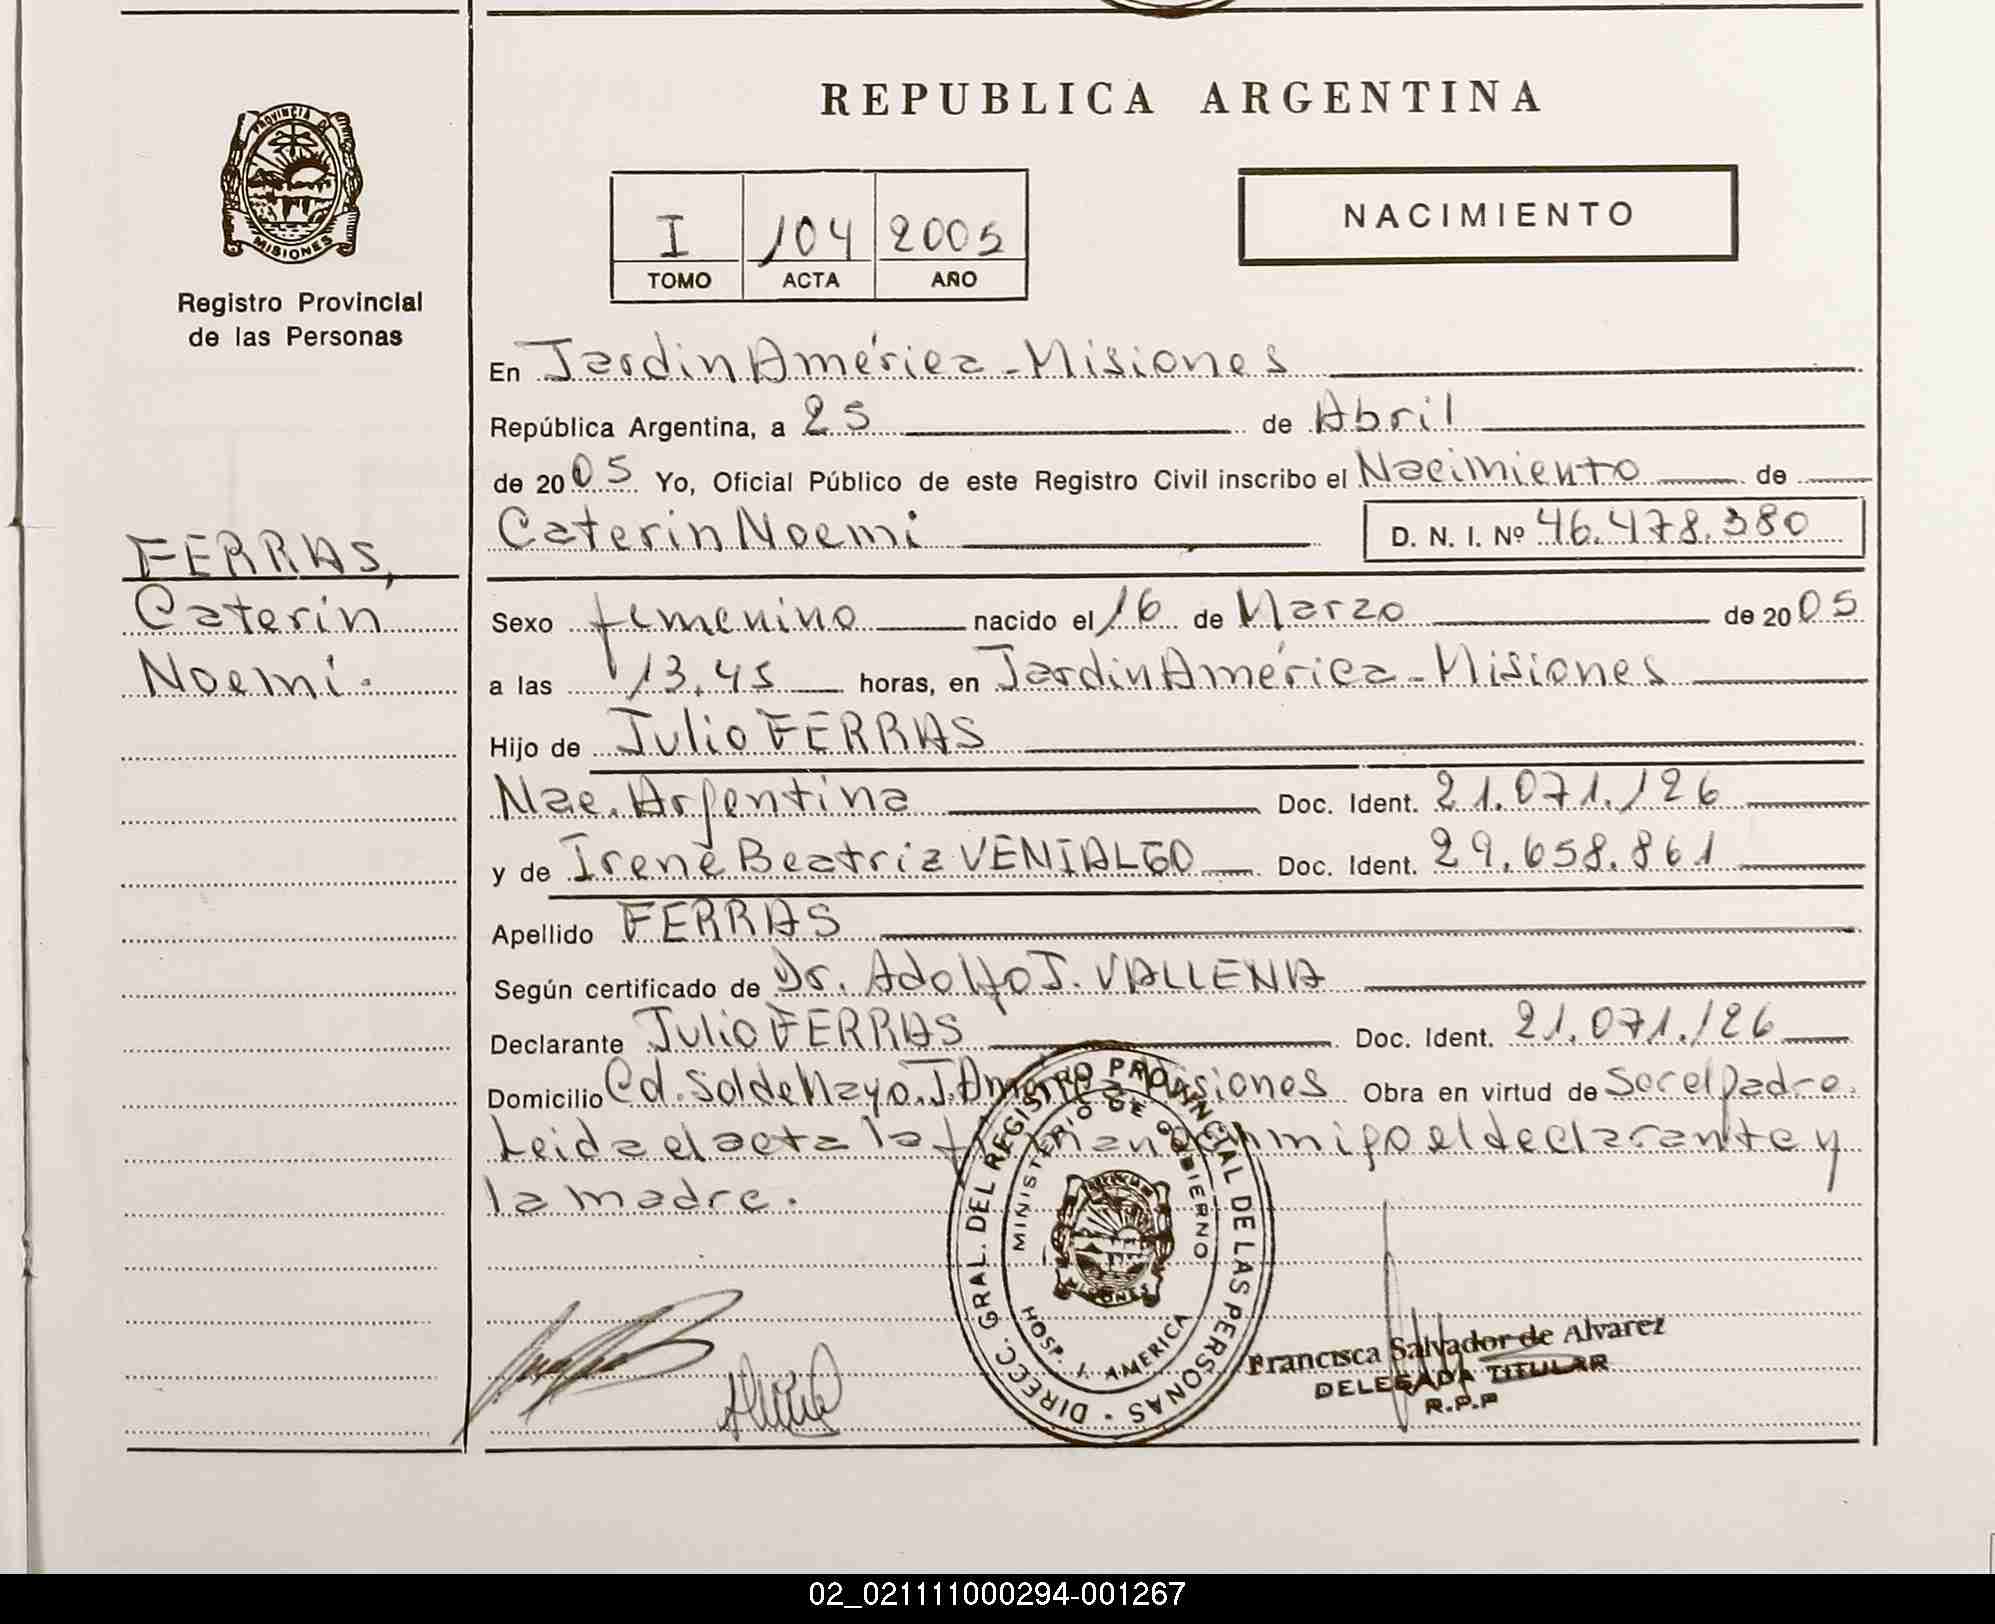 REPUBLICA ARGENTINA
PROVINCIA DE
MISIONES
Registro Provincial
de las Personas
I 104 2005
TOMO ACTA AÑO
NACIMIENTO
En Jardin América - Misiones
República Argentina, a 25 de Abril
de 2005 Yo, Oficial Público de este Registro Civil inscribo el Nacimiento de
Caterin Noemi D. N. I. Nº 46.478.380
FERRAS,
Caterin
Noemi.
Sexo femenino nacido el 16 de Marzo de 2005
a las 13.45 horas, en Jardin América - Misiones
Hijo de Julio FERRAS
Nac. Argentina Doc. Ident. 21.071.126
y de Irene Beatriz VENIALGO Doc. Ident. 29.658.861
Apellido FERRAS
Según certificado de Dr. Adolfo J. VALLENA
Declarante Julio FERRAS Doc. Ident. 21.071.126
Domicilio Cd. Sol de Mayo. J. América Misiones Obra en virtud de Ser el Padre.
Leida el acta la firman conmigo el declarante y
la madre.
DIRECC. GRAL. DEL REGISTRO PROVINCIAL DE LAS PERSONAS
MINISTERIO DE GOBIERNO
MISIONES
HOSP. J. AMERICA
Francisca Salvador de Alvarez
DELEGADA TITULAR
R.P.P
02_021111000294-001267